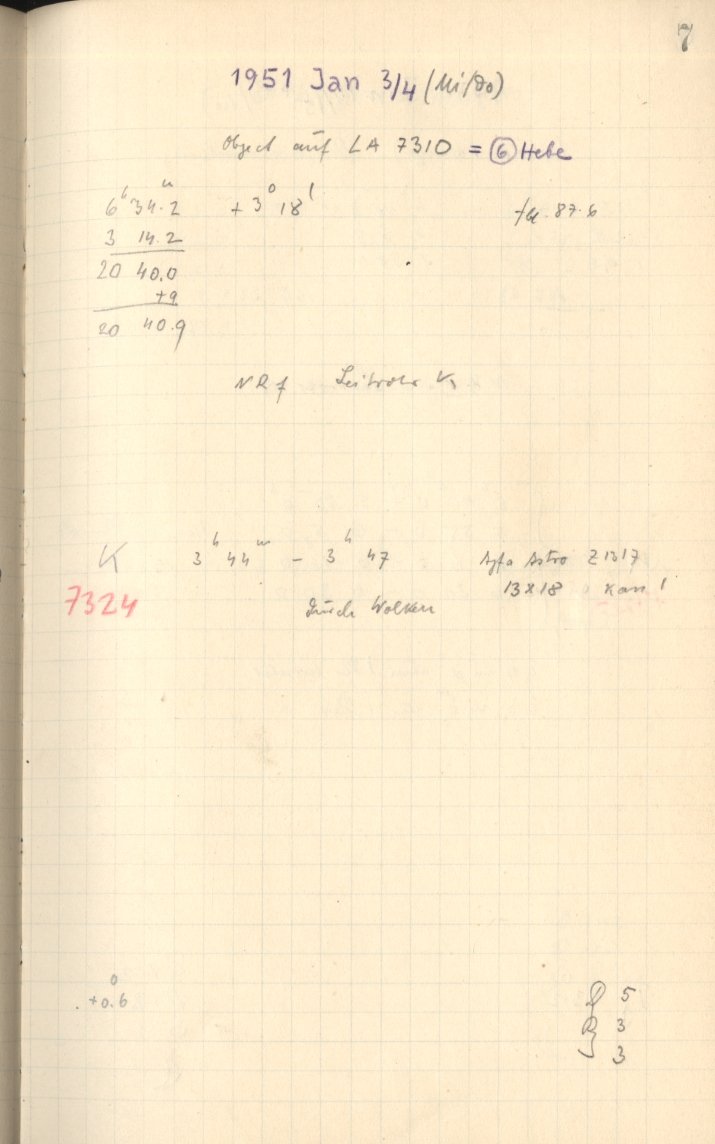 7
1951 Jan 3/4 (Mi/Do)
Object auf LA 7310 = ⑥ Hebe
6ʰ 34ᵐ.2 +3° 18' 87.6
3 14.2
20 40.0
+9
20 40.9
Leitrohr
K 3ʰ 44ᵐ – 3ʰ 47 Agfa Astro Z1317
7324 13x18
durch Wolken
+0.6° 5
3
3